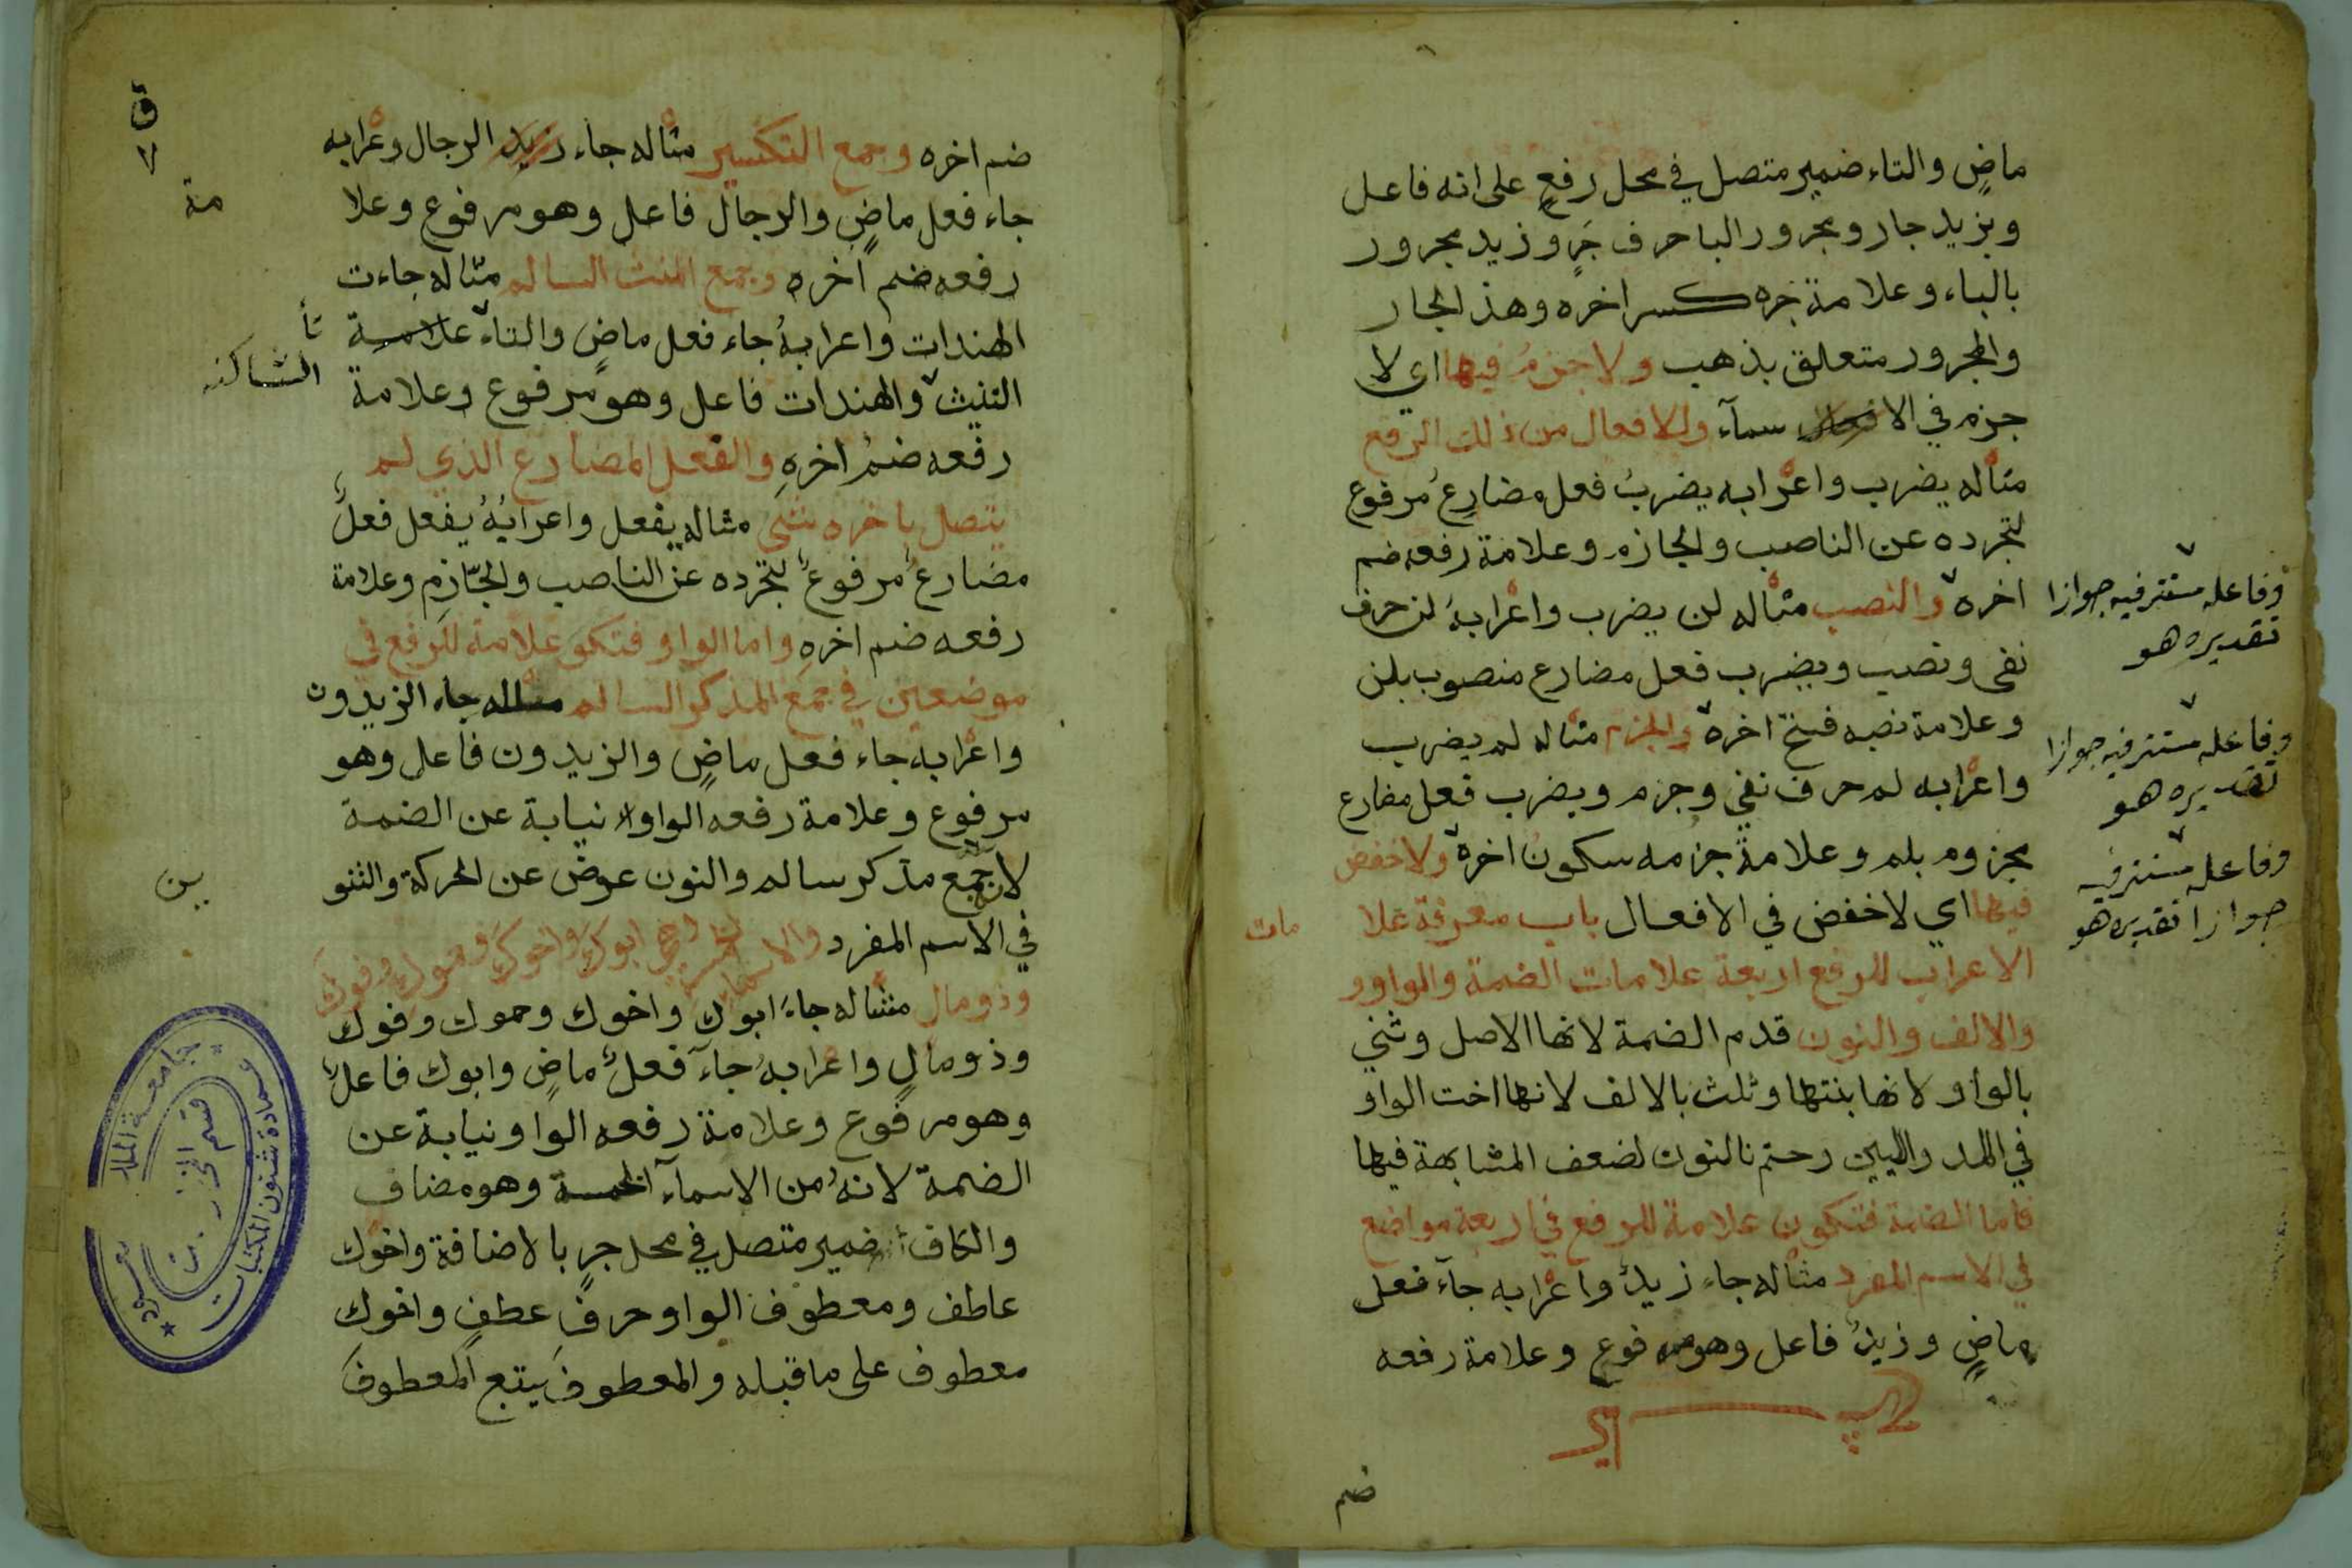 ماضٍ والتاء ضمير متصل في محل رفعٍ على انه فاعل
وبزيد جار ومجرور البا حرف جَرٍ وزيد مجرور
بالباء وعلامة جره كسر اخره وهذ الجار
والمجرور متعلق بذهب ولا جزمُ فيها اي لا
جزم في الا سمآء وللافعال من ذلك الرفع
مثاله يضرب واعرابه يضربُ فعل مضارعٌ مرفوع
لتجرده عن الناصب ولجازم وعلامة رفعه ضم
اخره والنصب مثاله لن يضرب واعرابهُ لن حرف
نفي ونصب ويضرب فعل مضارع منصوب بلن
وعلامة نصبه فتح اخره والجزم مثاله لم يضرب
واعرابه لم حرف نفي وجزم ويضرب فعل مضارع
مجزوم بلم وعلامة جزمه سكون اخره ولا خفض
فيها اي لا خفض في الافعال باب معرفة علا
مات
الاعراب للرفع اربعة علامات الضمة والواو و
والالف والنون قدم الضمة لانها الاصل وثني
بالواو لانها بنتها وثلث بالالف لانها اخت الواو
في المد والليين وختم بالنون لضعف المشابهة فيها
فاما الضمة فتكون علامة للرفع في اربعة مواضع
في الاسم المفرد مثاله جاء زيدٌ واعرابه جآء فعل
ماضٍ وزيدٌ فاعل وهو مرفوع وعلامة رفعه
ضم
وفاعله مستتر فيه جوازا
تقديره هو
وفاعله مستتر فيه جوازا
تقديره هو
وفاعله مستتر فيه
جوازا تقديره هو
ق
٧
ضم اخره وجمع التكسير مثاله جاء زيد الرجال وعرابه
جاء فعل ماضٍ والرجال فاعل وهو مرفوع وعلا
مة
رفعه ضم اخره وجمع المنث السالم مثاله جاءت
الهندات واعرابهُ جاء فعل ماضٍ والتاء علامة
تأ
الساكنه
التنيث والهندات فاعل وهو مرفوع وعلامة
رفعه ضمُ اخرهِ والفعل المضارع الذي لم
يتصل باخره شئي مثاله يفعل واعرابُهُ يفعل فعلٌ
مضارعٌ مرفوعٌ لتجرده عن الناصب ولجّازمِ وعلامة
رفعه ضم اخرهِ واما الواو فتكو علامة للرفع في
موضعين في جمع المذكر السالم مثاله جاء الزيدون
واعرابه جاء فعل ماضٍ والزيدون فاعل وهو
مرفوع وعلامة رفعه الواو نيابة عن الضمة
لانه جمع مذكر سالم والنون عوض عن الحركة والتنو
ين
في الاسم المفرد والاسماء الخمسة وهي ابوك واخوك وحموك وفوك
وذو مال مثاله جاء ابوك واخوك وحموك وفوك
وذو مالٍ واعرابهُ جآء فعلٌ ماضٍ وابوك فاعلٌ
وهو مرفوع وعلامة رفعه الواو نيابة عن
الضمة لانهُ من الاسمآء الخمسة وهو مضاف
والكاف ضمير متصل في محل جرٍ بالاضافة واخوك
عاطف ومعطوف الواو حرف عطفٍ واخوك
معطوف على ما قبله والمعطوف يتبع المعطوف
جامعة الملك سعود
عمادة شئون المكتبات
قسم